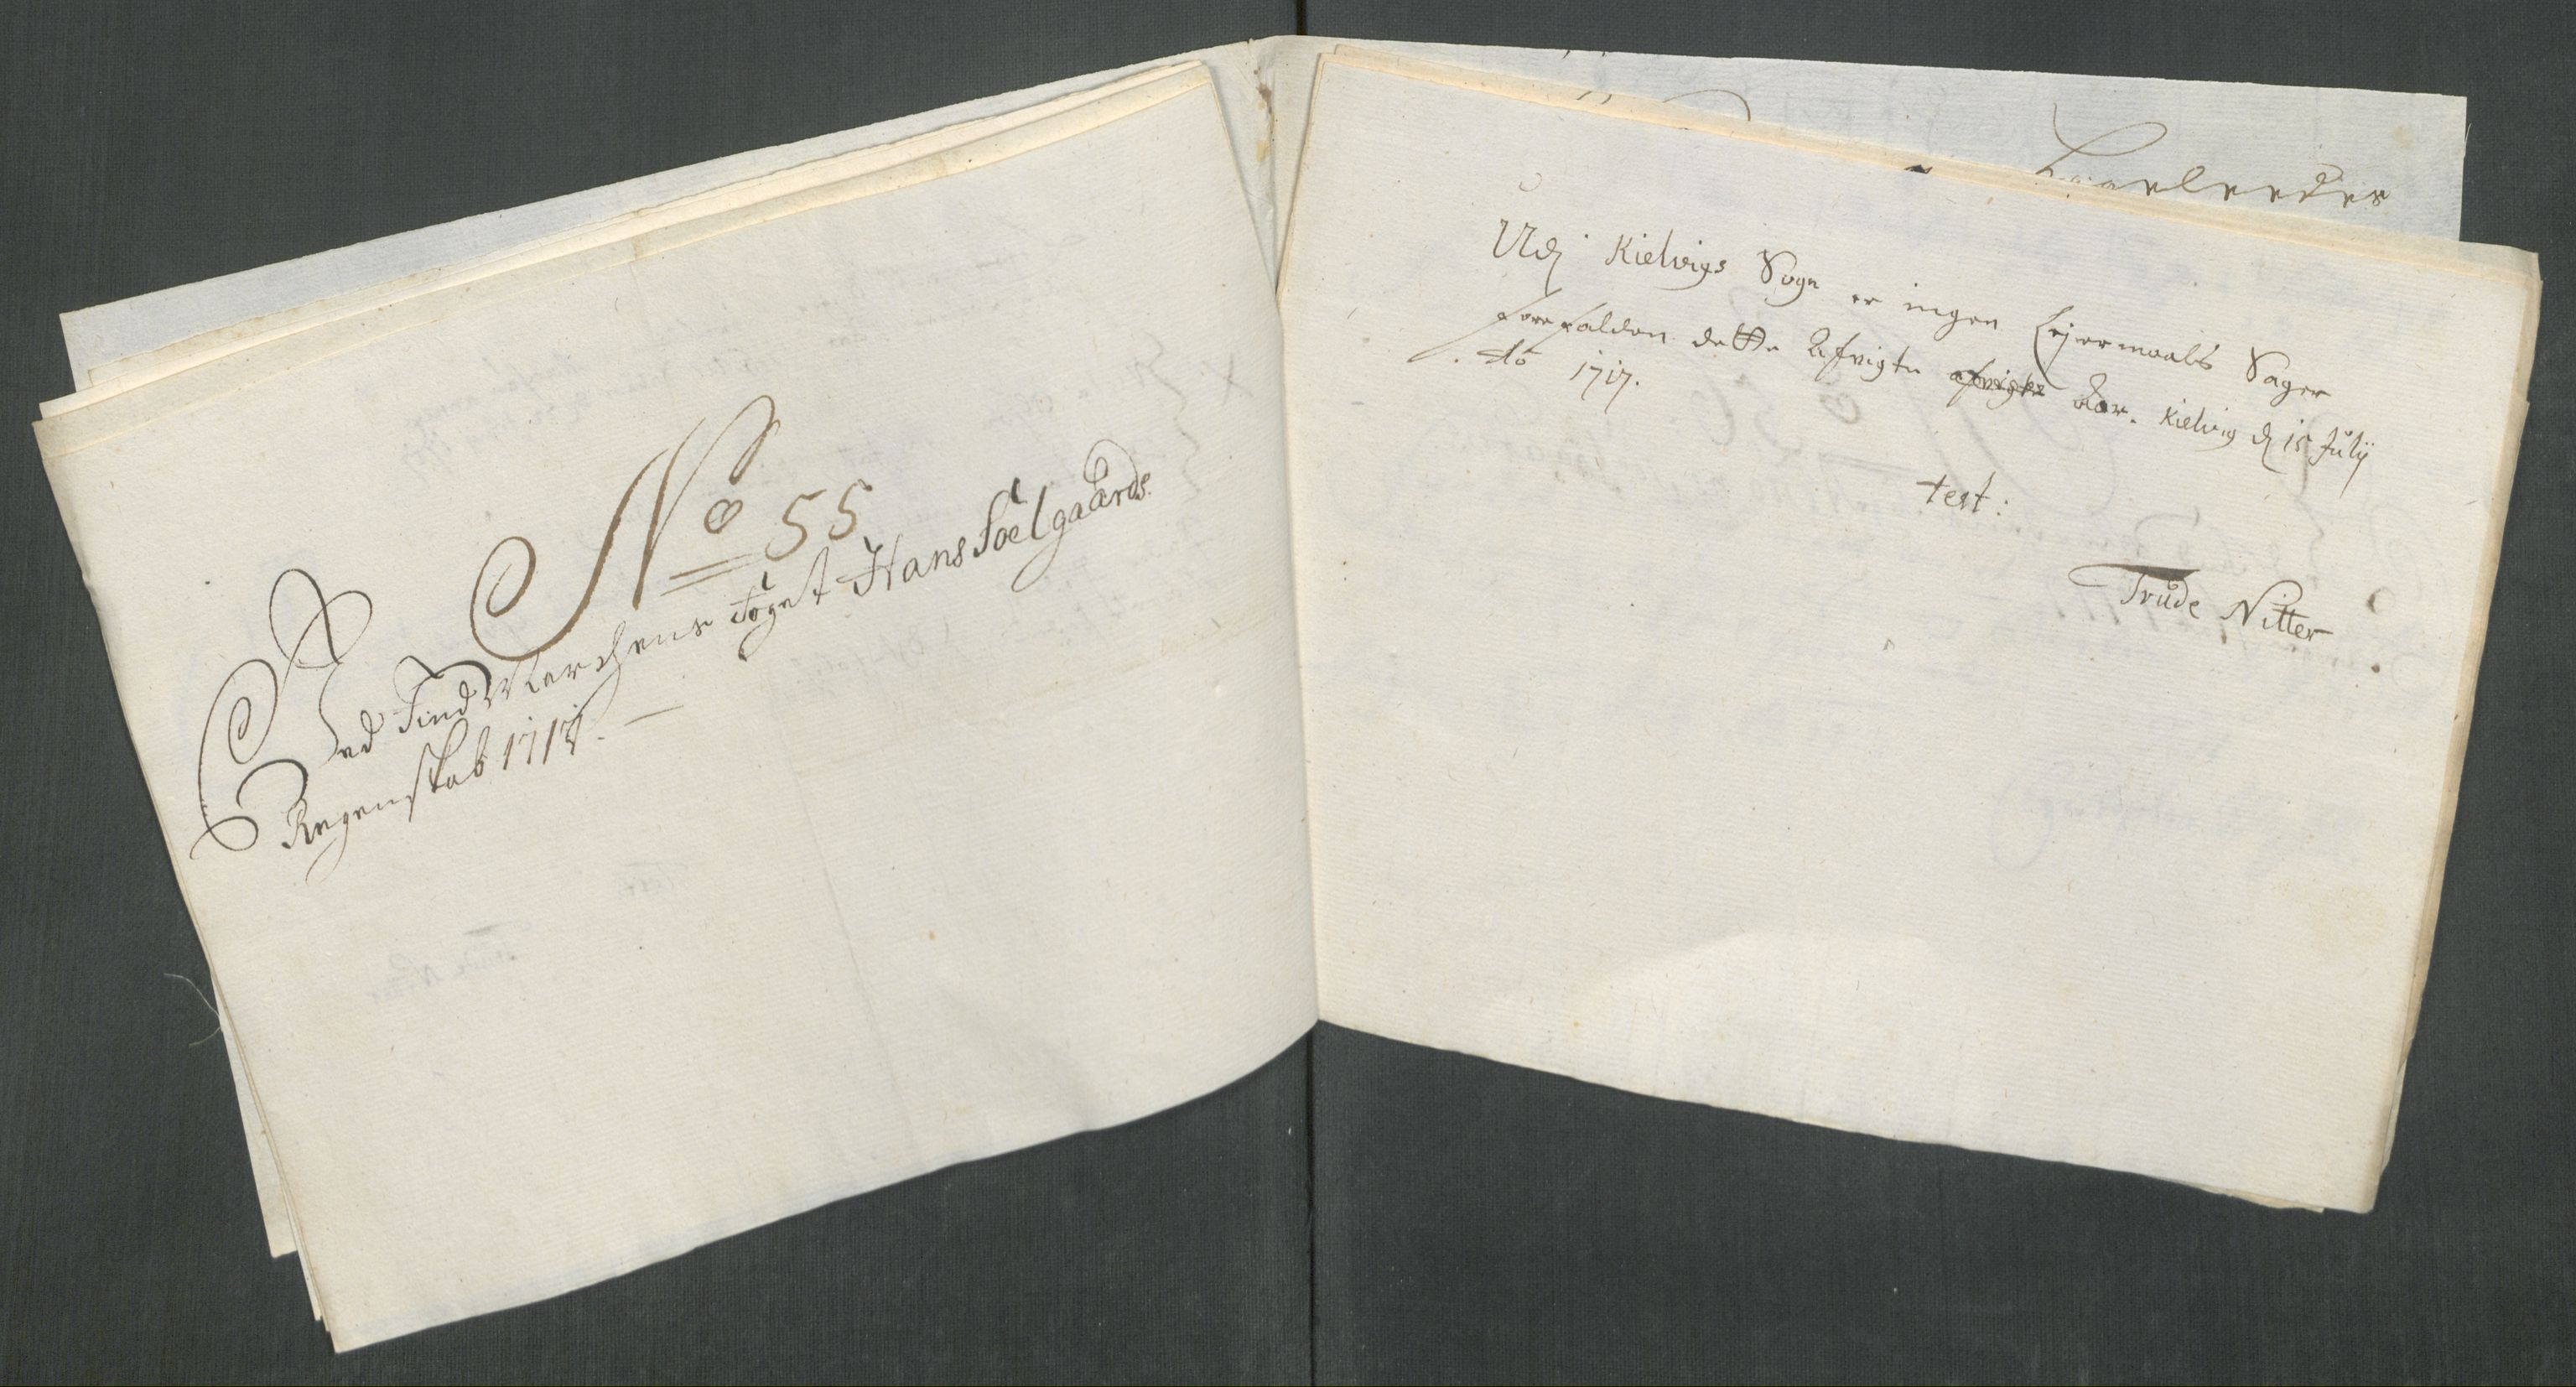 No 55
Ved Findmarchens Foget Hans Soelgaards
Regenskab 1717.
Udj Kielvigs Sogn er ingen Lejermaals Sager
forefalden dette Afvigte afvigte Aar. Kielvig d 15 Julij
Ao 1717.
test:
Trude Nitter